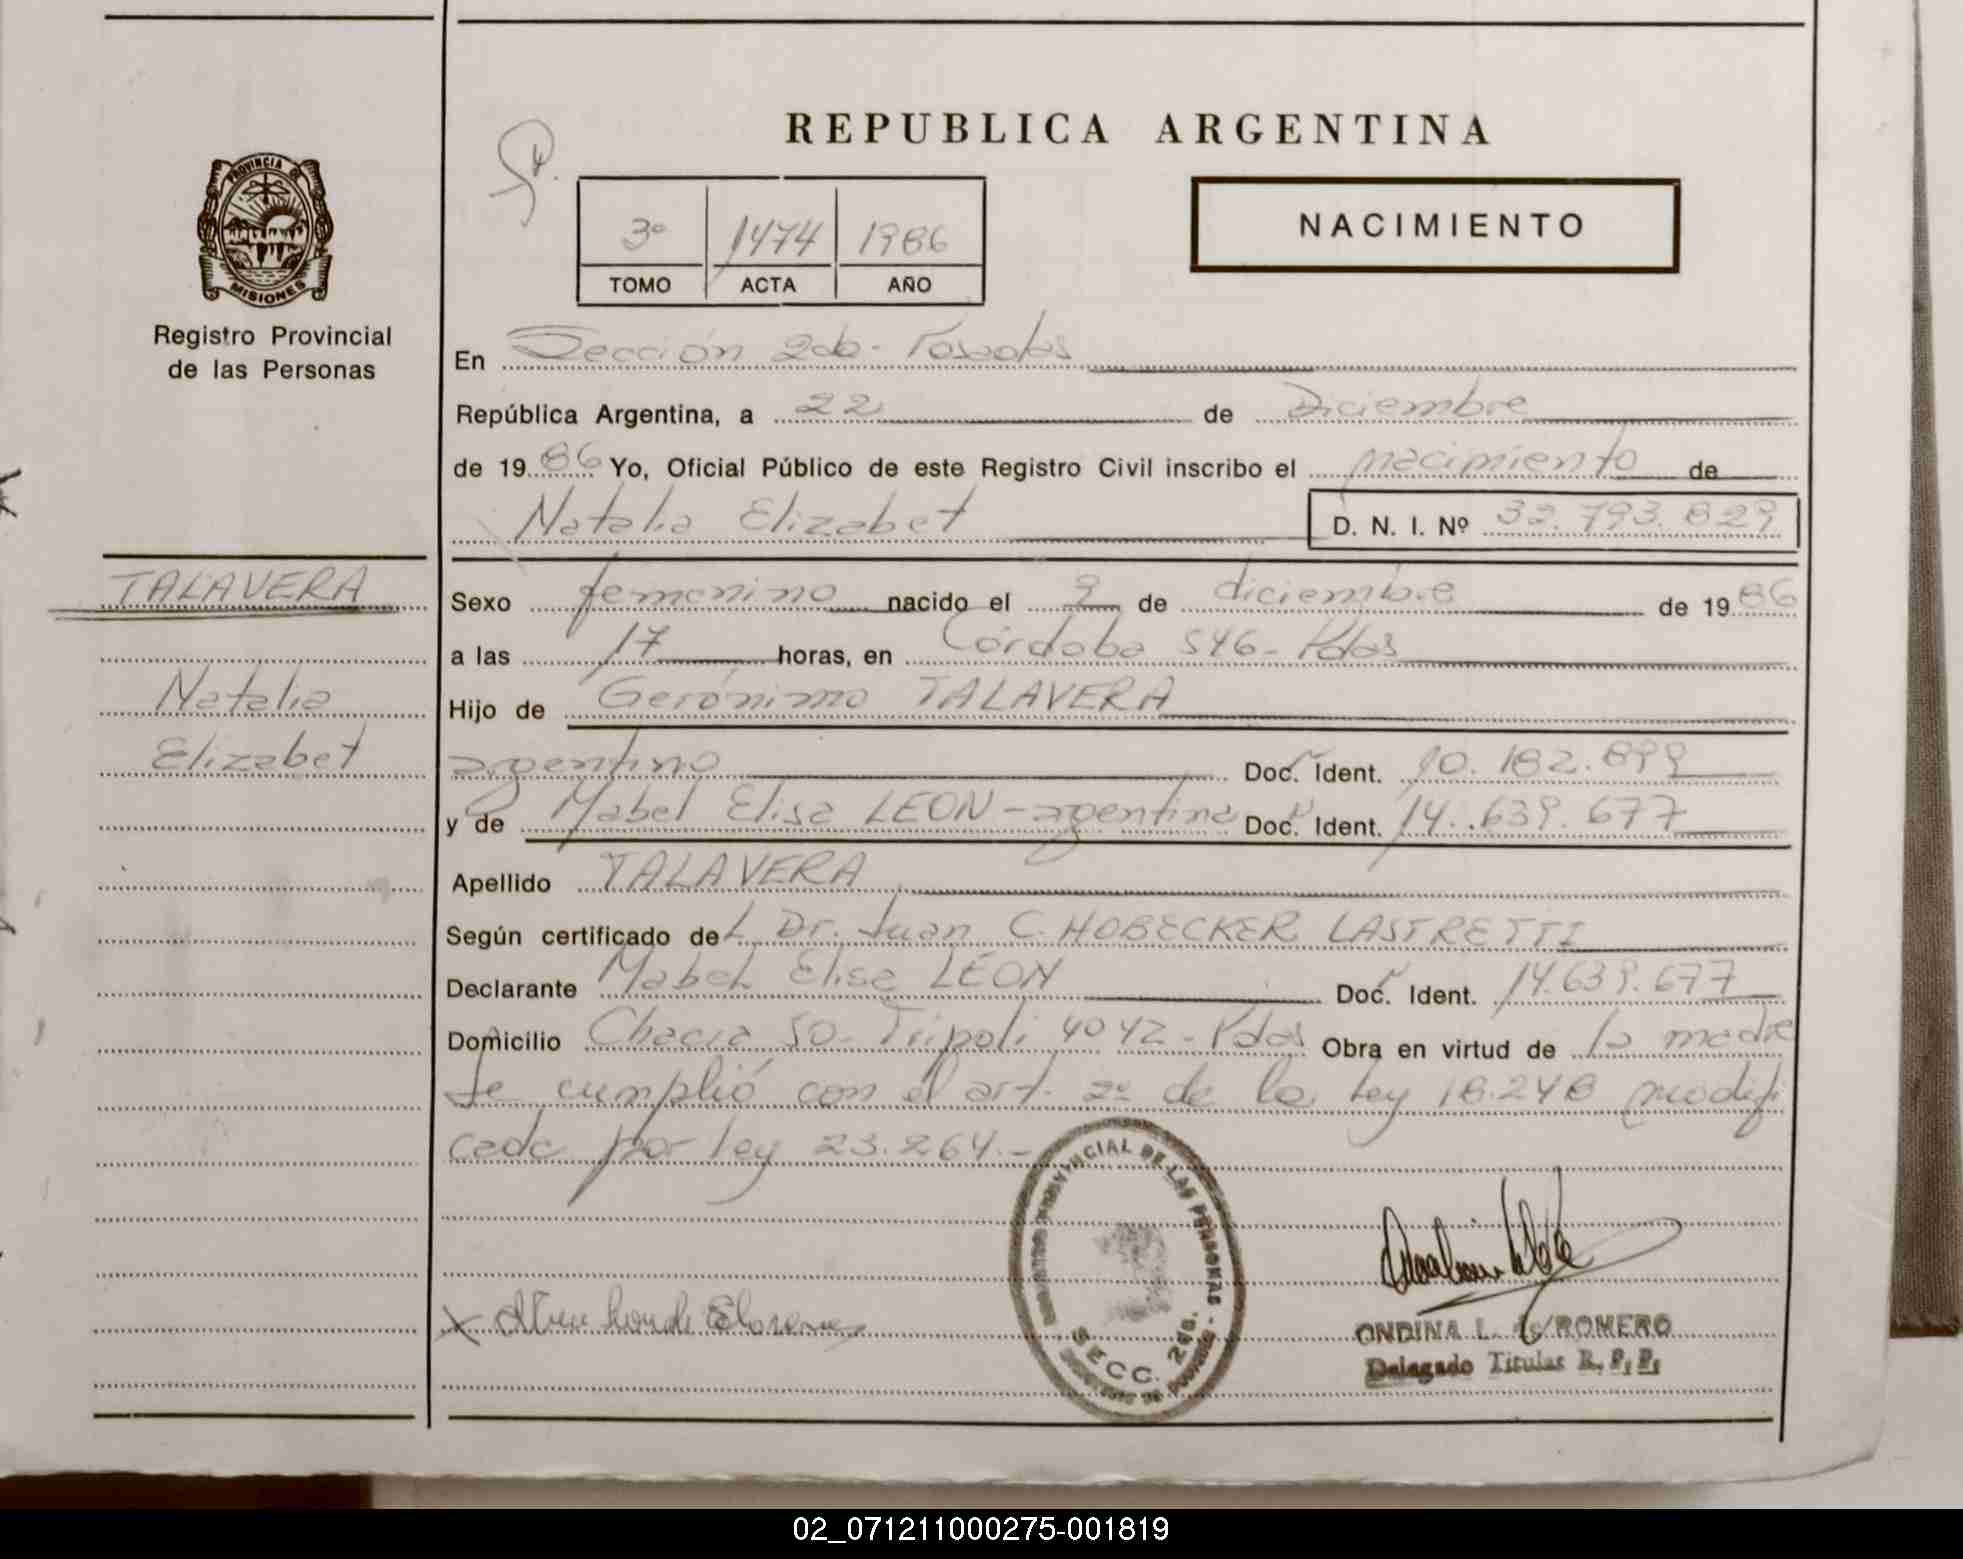 REPUBLICA ARGENTINA
PROVINCIA DE
MISIONES
Registro Provincial
de las Personas
3º 1474 1986
TOMO ACTA AÑO
NACIMIENTO
En Sección 2da - Posadas
República Argentina, a 22 de Diciembre
de 1986 Yo, Oficial Público de este Registro Civil inscribo el nacimiento de
Natalia Elizabet D. N. I. Nº 32.793.829
TALAVERA
Natalia
Elizabet
Sexo femenino nacido el 9 de diciembre de 1986
a las 17 horas, en Córdoba 546 - Pdas
Hijo de Gerónimo TALAVERA
argentino Doc. Ident. 10.182.899
y de Mabel Elisa LEON - argentina Doc. Ident. 14.639.677
Apellido TALAVERA
Según certificado del Dr. Juan C. HOBECKER LASTRETTI
Declarante Mabel Elisa LEON Doc. Ident. 14.639.677
Domicilio Chacra 50 - Tripoli 4042 - Pdas Obra en virtud de la madre
Se cumplió con el art. 2º de la ley 18.248 modifi
cada por ley 23.264.-
PROVINCIAL DE LAS PERSONAS
SECC. 2da.
ONDINA L. de ROMERO
Delegado Titular R. P. P.
02_071211000275-001819